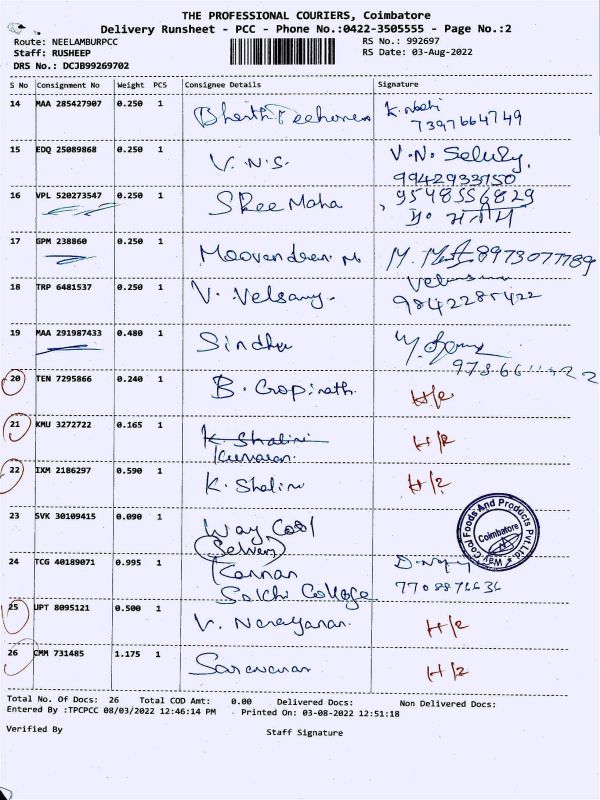 THE PROFESSIONAL COURIERS, Coimbatore
Delivery Runsheet - PCC - Phone No.:0422-3505555 - Page No.:2
Route: NEELAMBURPCC RS No.: 992697
Staff: RUSHEEP RS Date: 03-Aug-2022
DRS No.: DCJB99269702
S No Consignment No Weight PCS Consignee Details Signature
14 MAA 285427907 0.250 1
7397664749
15 EDQ 25089868 0.250 1 V.N.S. V.N.
9942933150
16 VPL 520273547 0.250 1 SRee Maha 9548556829
17 GPM 238860 0.250 1 M. 8973077789
18 TRP 6481537 0.250 1 V. 9842285422
19 MAA 291987433 0.480 1 Sindhu
20 TEN 7295866 0.240 1 B. Gopinath. H/R
21 KMU 3272722 0.165 1 K Shalini H/R
Kumaran.
22 IXM 2186297 0.590 1 K. Shalini H/R
23 SVK 30109415 0.090 1 Way Cool
(Selvam)
Way Cool Foods And Products Pvt.Ltd. Coimbatore
24 TCG 40189071 0.995 1 Kannan
College
25 UPT 8095121 0.500 1 V. Narayanan. H/R
26 CMM 731485 1.175 1 Saravanan H/R
Total No. Of Docs: 26 Total COD Amt: 0.00 Delivered Docs: Non Delivered Docs:
Entered By :TPCPCC 08/03/2022 12:46:14 PM Printed On: 03-08-2022 12:51:18
Verified By Staff Signature